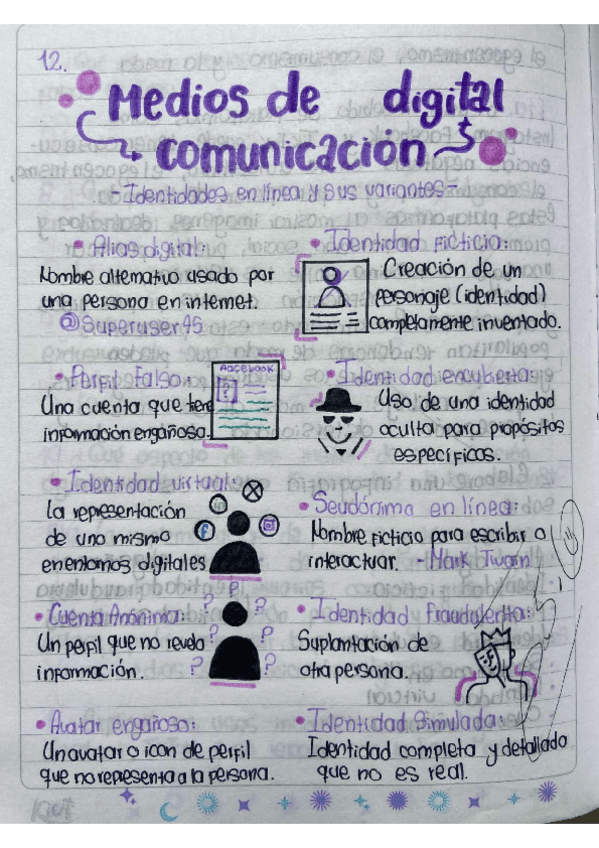 12.
Medios de digital
comunicación
- Identidades en línea y sus variantes -
• Alias digital:
Nombre alternativo usado por
una persona en internet.
@Superuser45
• Identidad Ficticia:
Creación de un
personaje (identidad)
completamente inventado.
• Perfil Falso:
Una cuenta que tiene
información engañosa.
Facebook
?
• Identidad encubierta:
Uso de una identidad
oculta para propósitos
específicos.
• Identidad virtual:
la representación
de uno mismo
en entornos digitales
f
• Seudónimo en línea:
Nombre ficticio para escribir o
interactuar. - Mark Twain
• Cuenta Anónima:
Un perfil que no revela
información.
? ? ? ? ?
• Identidad Fraudulenta:
Suplantación de
otra persona.
• Avatar engañoso:
Un avatar o icon de perfil
que no representa a la persona.
• Identidad Simulada:
Identidad completa y detallada
que no es real.